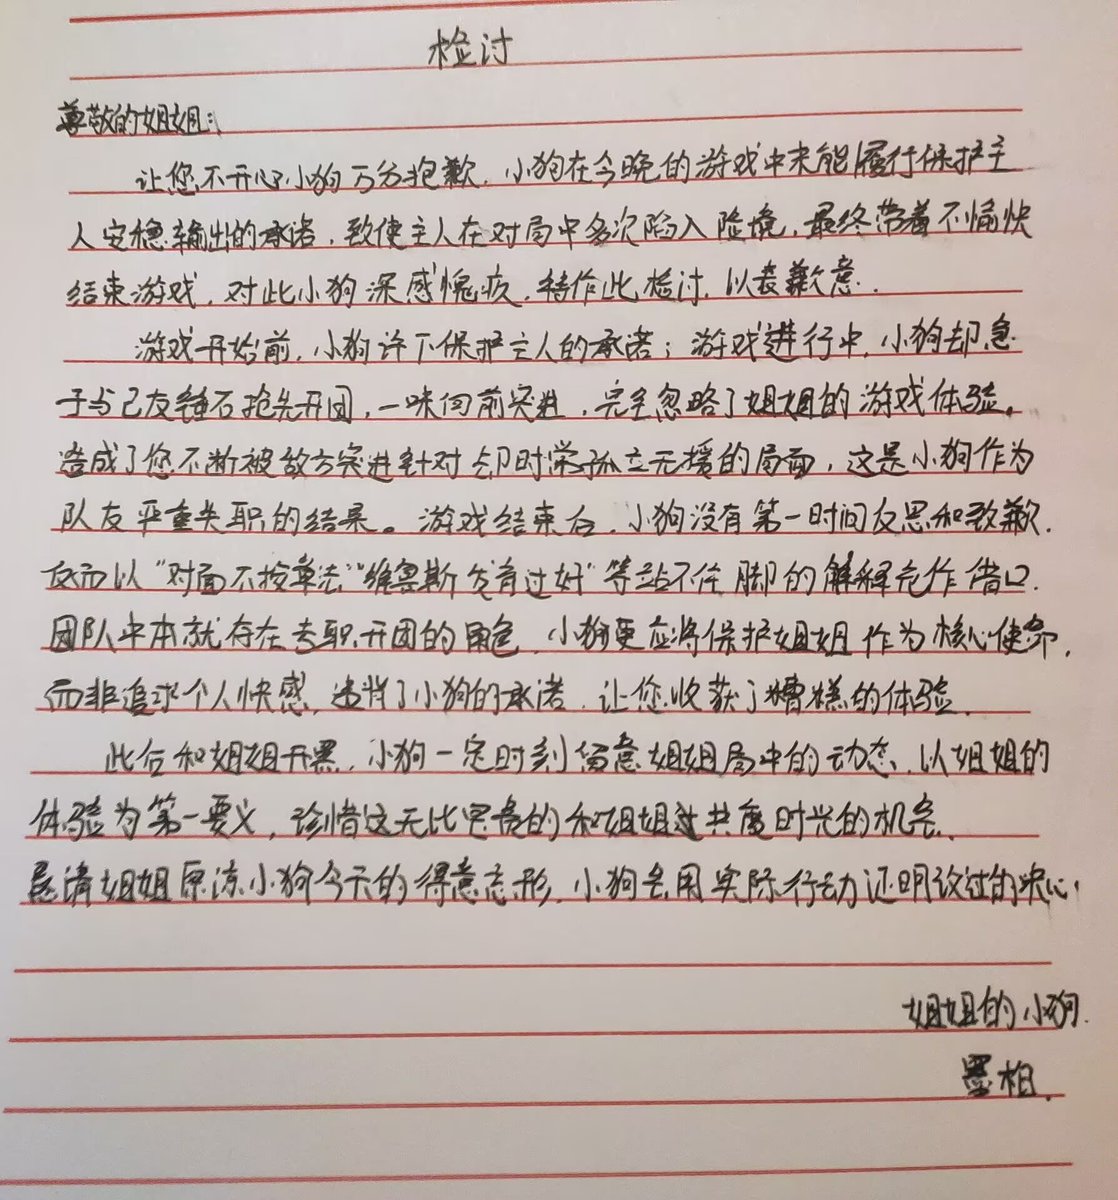 检讨
尊敬的姐姐：
让您不开心小狗万分抱歉，小狗在今晚的游戏中未能履行保护主
人安稳输出的承诺，致使主人在对局中多次陷入险境，最终带着不愉快
结束游戏，对此小狗深感愧疚，特作此检讨，以表歉意.
游戏开始前，小狗许下保护主人的承诺；游戏进行中，小狗却急
于与己友锤石抢先开团，一味向前突进，完全忽略了姐姐的游戏体验。
造成了您不断被敌方突进针对却时常孤立无援的局面，这是小狗作为
队友严重失职的结果。游戏结束后，小狗没有第一时间反思和致歉.
反而以“对面不按章法”“维鲁斯发育过好”等站不住脚的解释充作借口.
团队中本就存在专职开团的角色，小狗更应将保护姐姐作为核心使命，
而非追求个人快感，违背了小狗的承诺，让您收获了糟糕的体验.
此后和姐姐开黑，小狗一定时刻留意姐姐局中的动态，以姐姐的
体验为第一要义，珍惜这无比宝贵的和姐姐共度时光的机会.
恳请姐姐原谅小狗今天的得意忘形，小狗会用实际行动证明改过的决心.
姐姐的小狗.
墨柏.